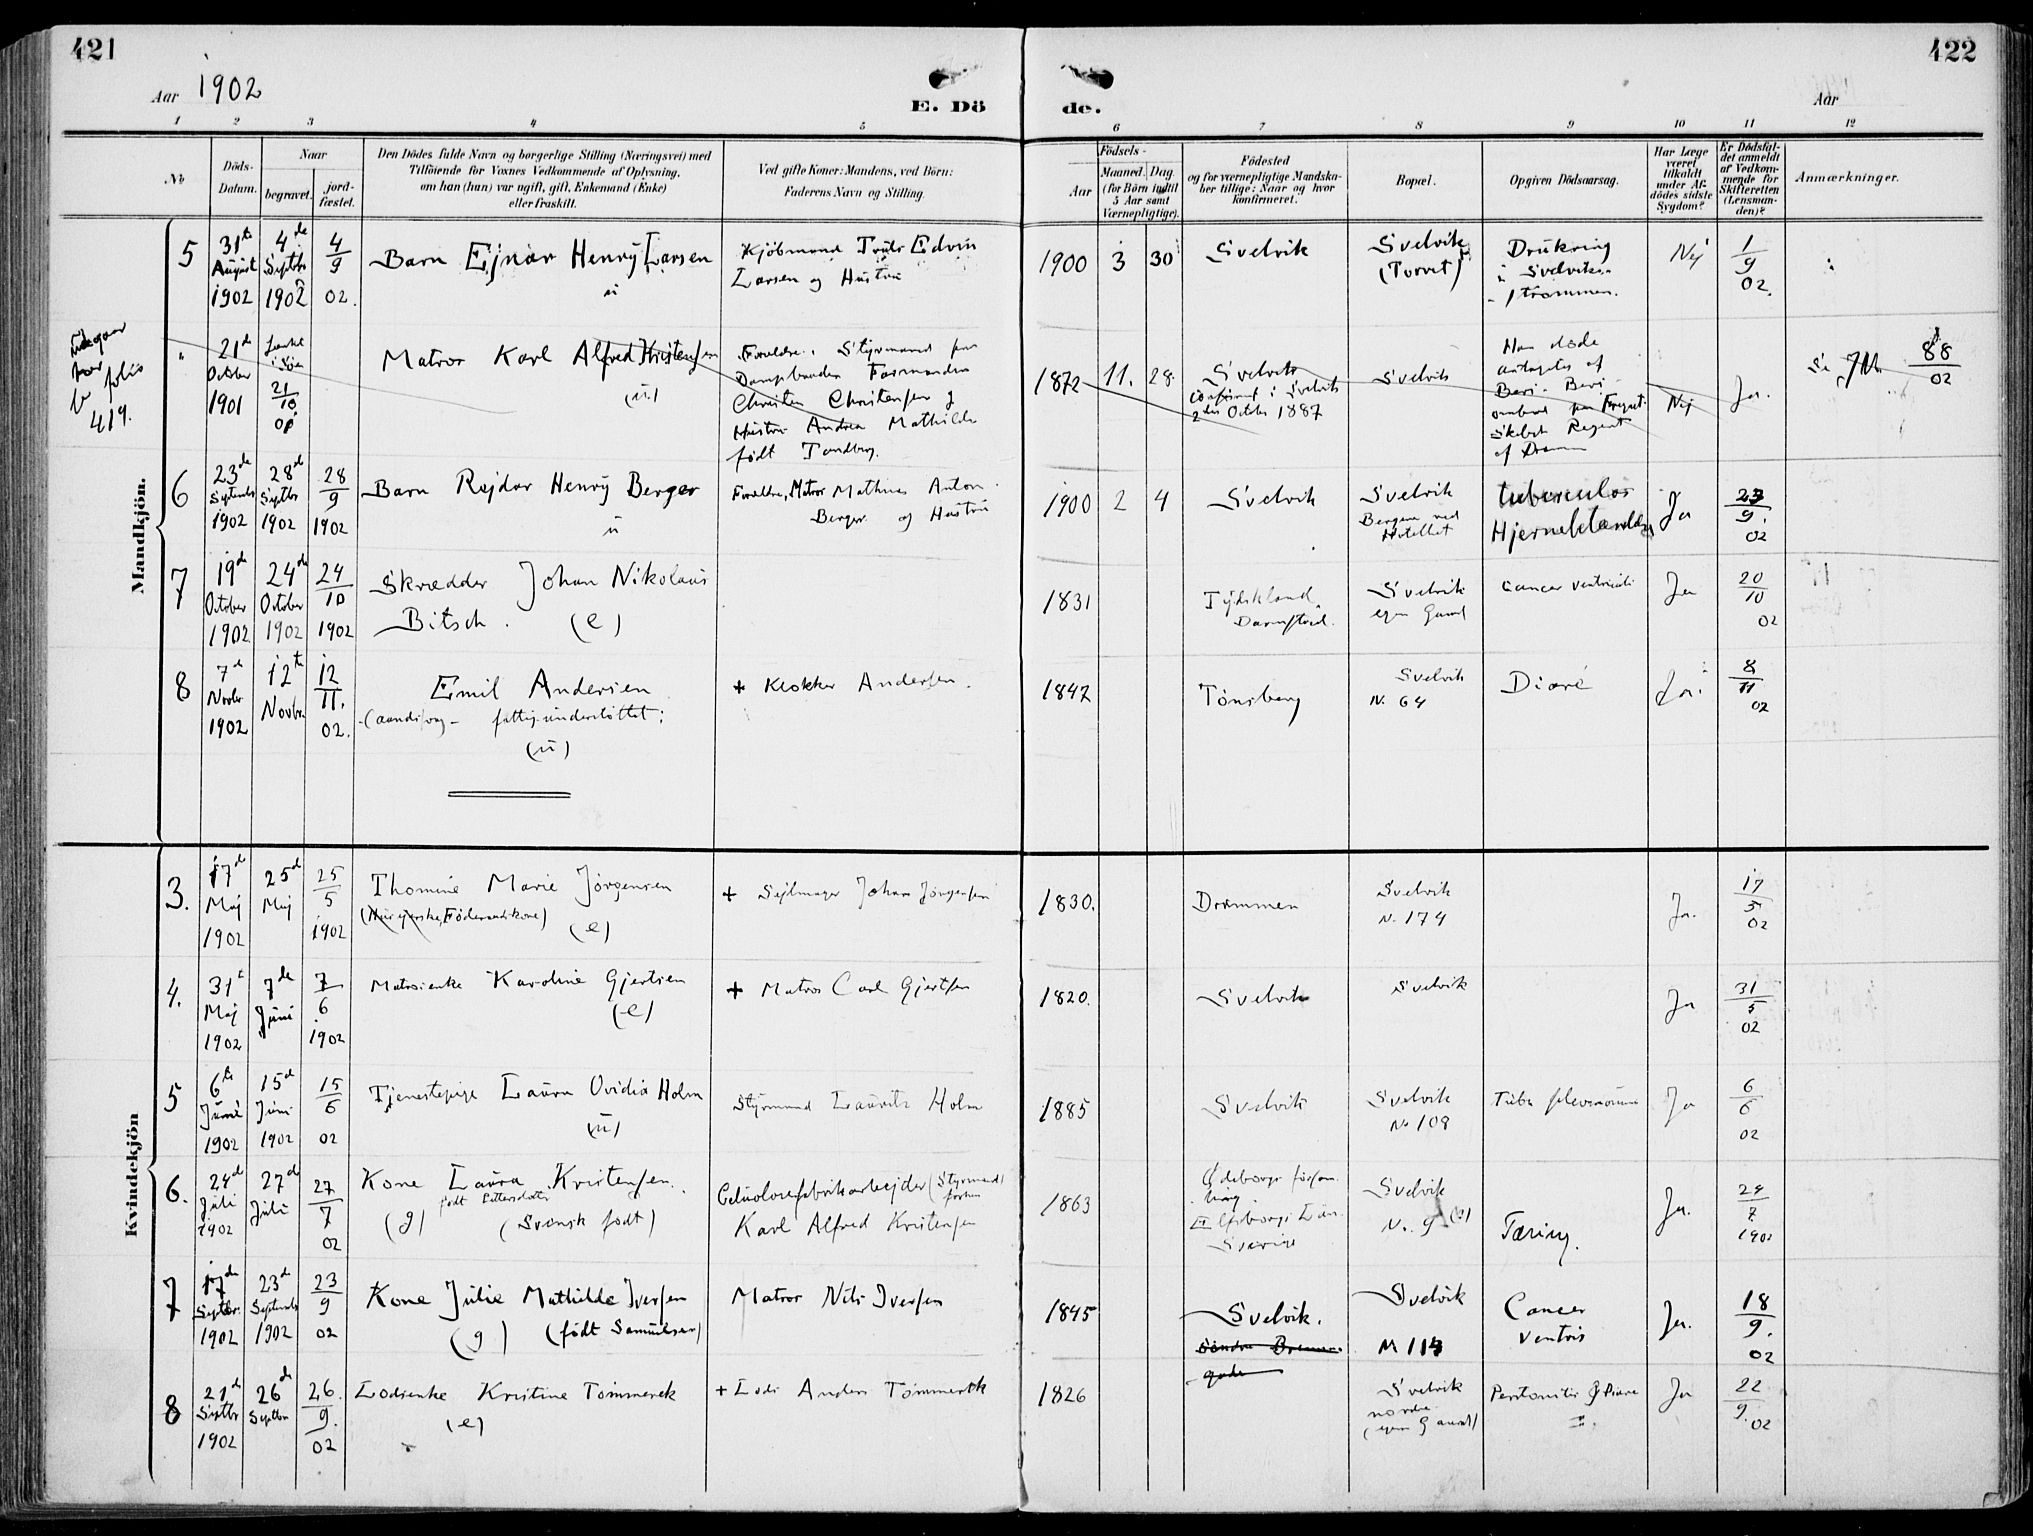 421
422
Aar 1902
E. Dö
de.
Aar
1 2 3 4 5 6 7 8 9 10 11 12
No
Döds-
Datum.
Naar
begravet.
jord-
fæstet.
Den Dödes fulde Navn og borgerlige Stilling (Næringsvei) med
Tilföiende for Voxnes Vedkommende af Oplysning,
om han (hun) var ugift, gift, Enkemand (Enke)
eller fraskilt.
Ved gifte Koner: Mandens, ved Börn:
Faderens Navn og Stilling.
Födsels-
Aar
Maaned. Dag
(for Börn indtil
5 Aar samt
Værnepligtige).
Födested
og for værnepligtige Mandska-
ber tillige: Naar og hvor
konfirmeret.
Bopæl.
Opgiven Dödsaarsag.
Har Læge
været
tilkaldt
under Af-
dödes sidste
Sygdom?
Er Dödsfal-
det anmeldt
af Vedkom-
mende for
Skifteretten
(Lensman-
den)?
Anmærkninger.
Mandkjön.
5
31te
August
1902
4de
Septbr
1902
4
9
02.
Barn Ejnar Henry Larsen
u
Kjöbmand Truls Edvin
Larsen og Hustru
1900 3 30
Svelvik
Svelvik
(Torvet)
Drukning
i Svelviks-
strömmen.
Nej
1
9
02.
folio
419.
21de
October
1901
21
10
01
Matros Karl Alfred Kristensen
(u)
Forældre: Styrmand paa
Dampbaaden Formanden
Christen Christensen og
Hustru Andrea Mathilde
født Tandberg.
1872 11. 28
Svelvik
Confirm. i Svelvik
2den Octbr 1887
Svelvik
Han døde
antagelig af
Beri-Beri
ombord paa Fregat-
Skibet Regent
af Drammen
Nej
Ja.
88
02
6
23de
Septembr
1902
28de
Septbr
1902
28
9
1902
Barn Rejdar Henry Berger
u
Forældre, Matros Mathias Anton
Berger og Hustru
1900 2 4
Svelvik
Svelvik
Bergene ved
Hotellet
tuberculos
Hjernebetændelse
Ja
23
9.
02
7
19de
October
1902
24de
October
1902
24
10
1902
Skrædder Johan Nikolaus
Bitsch. (e)
1831
Tydskland
Darmstad.
Svelvik
egen Gaard
Cancer ventriculi
Ja
20
10
02
8
7de
Novbr
1902
12te
Novbr.
12
11.
02.
Emil Andersen
(aandssvag - fattigunderstöttet:
(u)
+ Klokker Andersen.
1847
Tönsberg
Svelvik
N. 64
Diaré
Ja.
8
11
02
Kvindekjön
3.
17de
Maj
1902
25de
Maj
25
5
1902
Thomine Marie Jörgensen
(e)
+ Sejlmager Johan Jörgensen
1830.
Drammen
Svelvik
N. 174
Ja.
17
5
02
4.
31te
Maj
1902
7de
Juni
7
6
1902
Matrosenke Karoline Gjertsen
(e)
+ Matros Carl Gjertsen
1820.
Svelvik
Svelvik
Ja
31
5
02
5
6te
Juni
1902
15de
Juni
1902
15
6
02
Tjenestepige Laura Ovidia Holm
(u)
Styrmand Lauritz Holm
1885
Svelvik
Svelvik
No 108
Ja
6
6
02
6.
24de
Juli
1902
27de
Juli
27
7
02
Kone Laura Kristensen.
født Pettersdatter
(g) (Svensk født)
Celulosefabrikarbejder (Styrmand
forhen
Karl Alfred Kristensen
1863
Ødeborgs forsam-
ling
Elfsborgs Län
Sverige
Svelvik
N. 9
Tæring.
Ja.
24
7.
1902
7
17de
Septbr.
1902
23de
Septembr
1902
23
9
02
Kone Julie Mathilde Iversen
(g) (født Samuelsen)
Matros Nils Iversen
1845
Svelvik.
Söndre Brænne-
gade
Svelvik
N 114
Cancer
Ventris
Ja.
18
9.
02
8
21de
Septbr
1902
26de
Septbr
26.
9.
02
Lodsenke Kristine Tömmeræk
(e)
+ Lods Anders Tömmeræk
1826
Svelvik
nordre
(egen Gaard)
Peritonitis & Diare
Ja
22
9.
02